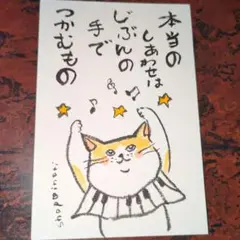 本当の
しあわせは
じぶんの
手で
つかむもの